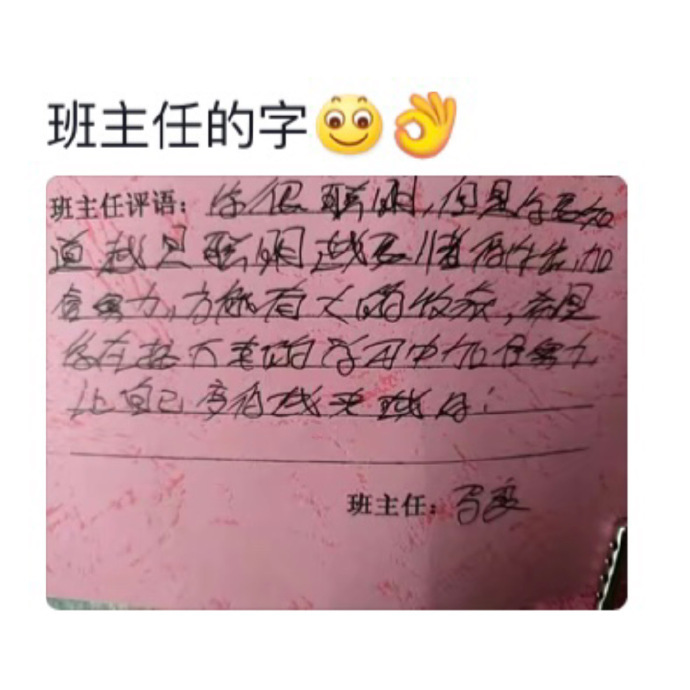 班主任的字
班主任评语：你很聪明，但是你要知
道越是聪明越要懂得付出，加
倍努力，方能有大的收获，希望
你在接下来的学习中加倍努力
让自己变得越来越好！
班主任：